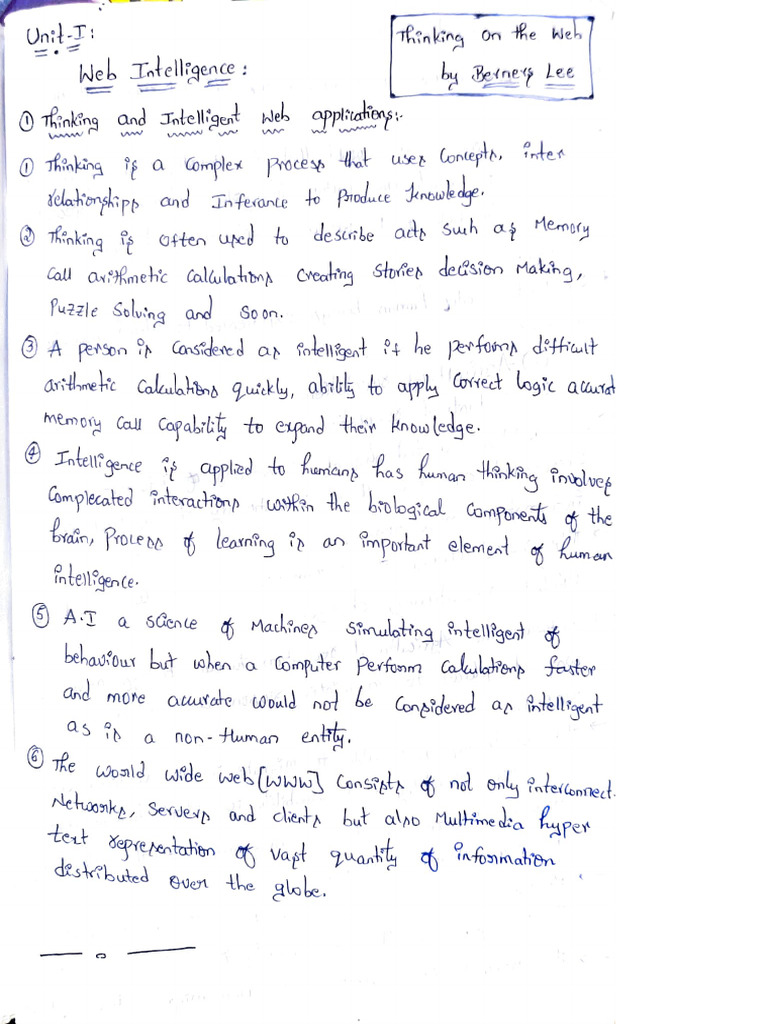 Unit-I:
Thinking on the Web
by Berners Lee
Web Intelligence:
① Thinking and Intelligent Web applications:-
① Thinking is a complex process that uses concepts, inter
relationships and Inferance to Produce knowledge.
② Thinking is often used to describe acts such as Memory
call arithmetic calculations creating stories decision Making,
Puzzle Solving and soon.
③ A person is considered as intelligent if he performs difficult
arithmetic calculations quickly, ability to apply correct logic accurat
memory call capability to expand their knowledge.
④ Intelligence is applied to humans has human thinking involves
Complecated interactions within the biological components of the
brain, Process of learning is an important element of human
intelligence.
⑤ A.I a science of Machines simulating intelligent of
behaviour but when a computer perform calculations faster
and more accurate would not be considered as intelligent
as is a non-Human entity.
⑥ The world wide web [WWW] consists of not only interconnect.
Networks, servers and clients but also Multimedia hyper
text representation of vast quantity of information
distributed over the globe.